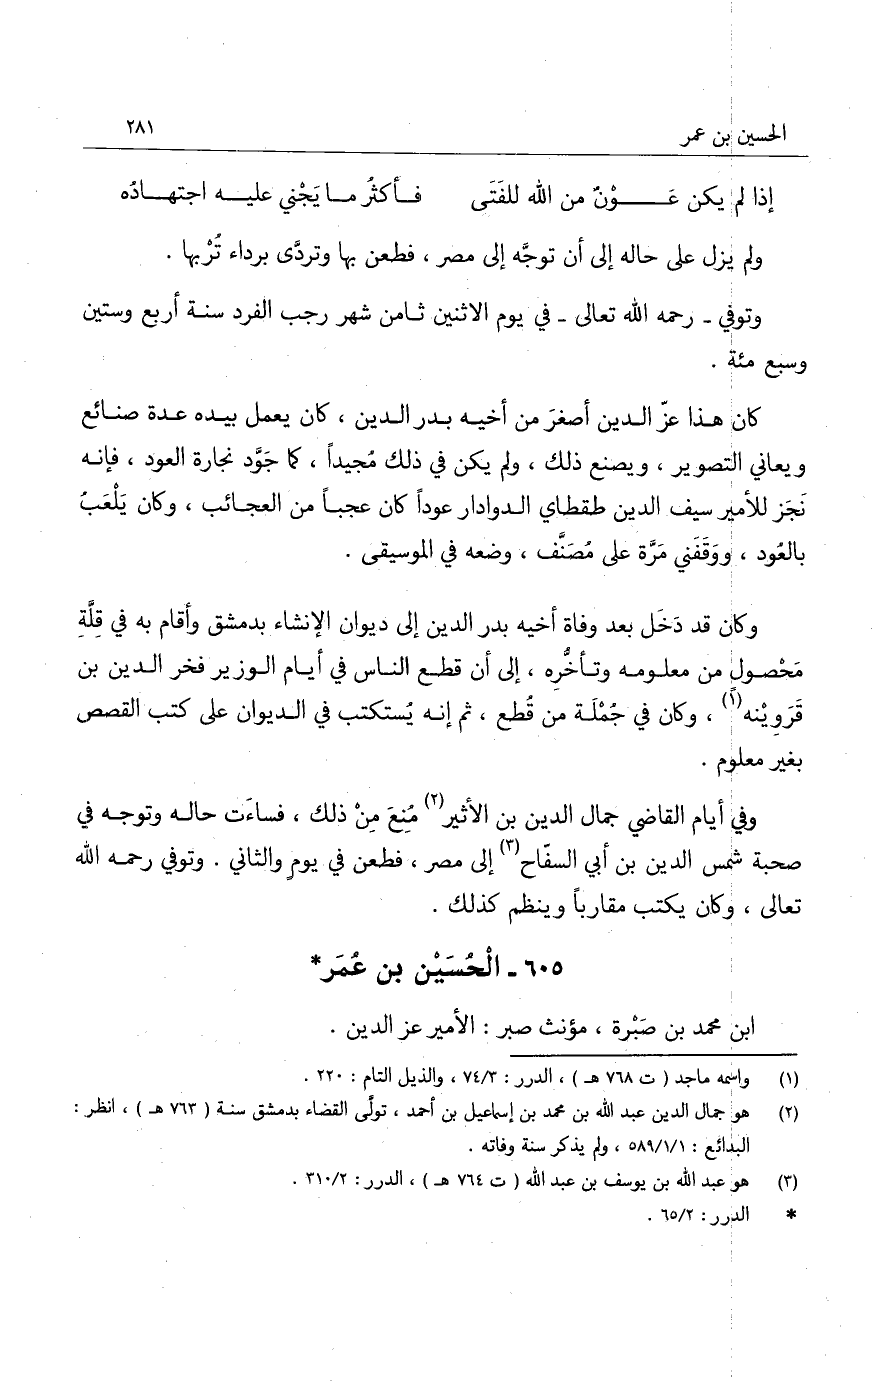 الحسين بن عمر ٢٨١
إذا لم يكن عَــــوْنٌ من الله للفَتَى فـأكثرُ مـا يَجْني عليــه اجتهــادُه
ولم يزل على حاله إلى أن توجَّه إلى مصر ، فطعن بها وتردَّى برداء تُرْبها .
وتوفي ـ رحمه الله تعالى ـ في يوم الاثنين ثـامن شهر رجب الفرد سنـة أربع وستين
وسبع مئة .
كان هـذا عزّ الـدين أصغرَ من أخيـه بـدر الـدين ، كان يعمل بيـده عـدة صنـائع
ويعاني التصوير ، ويصنع ذلك ، ولم يكن في ذلك مُجيداً ، كما جَوَّد نجارة العود ، فإنـه
نَجَز للأمير سيف الدين طقطاي الـدوادار عوداً كان عجبـاً من العجـائب ، وكان يَلْعَبُ
بالعُود ، ووَقَفَني مَرَّة على مُصَنَّف ، وضعه في الموسيقى .
وكان قد دَخَل بعد وفاة أخيه بدر الدين إلى ديوان الإنشاء بدمشق وأقام به في قِلَّةِ
مَحْصـولٍ من معلـومـه وتـأخُّرِه ، إلى أن قطـع النـاس في أيـام الـوزير فخر الـدين بن
قَرَوِيْنه(١) ، وكان في جُمْلَـة من قُطع ، ثم إنـه يُستكتب في الـديوان على كتب القصص
بغير معلوم .
وفي أيام القاضي جمال الدين بن الأثير(٢) مُنِعَ مِنْ ذلك ، فساءَت حالـه وتوجـه في
صحبة شمس الدين بن أبي السفّاح(٣) إلى مصر ، فطعن في يومٍ والثاني . وتوفي رحمـه الله
تعالى ، وكان يكتب مقارباً وينظم كذلك .
٦٠٥ ـ الْحُسَيْن بن عُمَر*
ابن محمد بن صَبْرة ، مؤنث صبر : الأمير عز الدين .
(١) واسمه ماجد ( ت ٧٦٨ هـ ) ، الدرر : ٧٤/٣ ، والذيل التام : ٢٢٠ .
(٢) هو جمال الدين عبد الله بن محمد بن إسماعيل بن أحمد ، تولَّى القضاء بدمشق سنة ( ٧٦٣ هـ ) ، انظر :
البدائع : ٥٨٩/١/١ ، ولم يذكر سنة وفاته .
(٣) هو عبد الله بن يوسف بن عبد الله ( ت ٧٦٤ هـ ) ، الدرر : ٣١٠/٢ .
* الدرر : ٦٥/٢ .